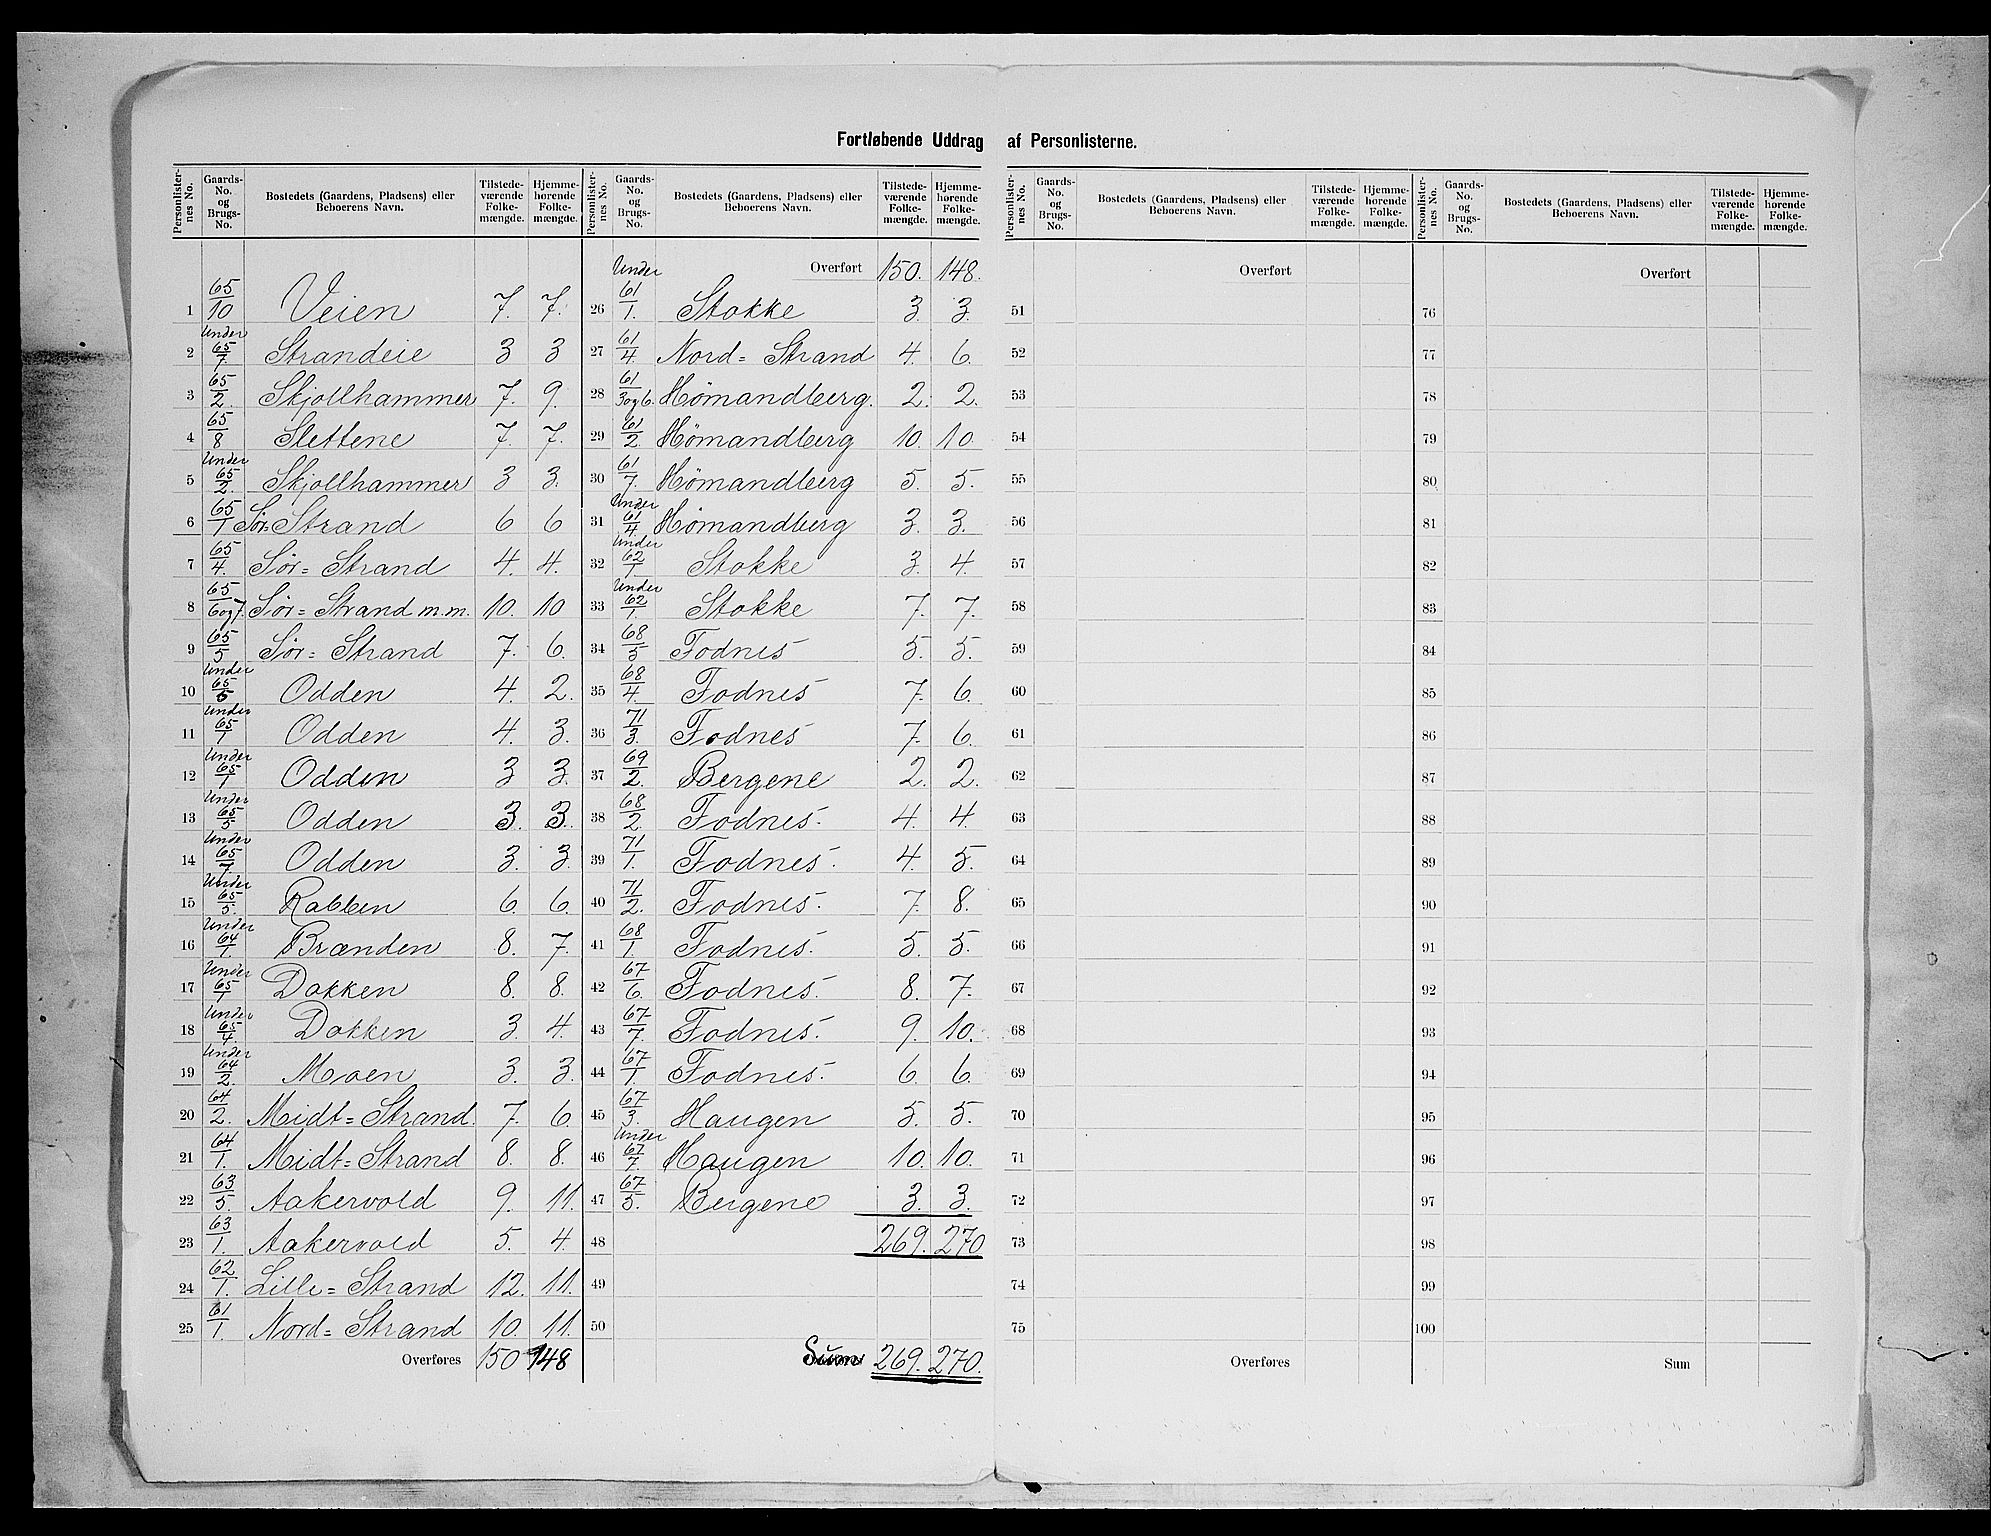 Fortløbende Uddrag af Personlisterne.
Personlister-nes No. | Gaards-No. og Brugs-No. | Bostedets (Gaardens, Pladsens) eller Beboerens Navn. | Tilstede-værende Folke-mængde. | Hjemme-hørende Folke-mængde.
1 65/10 Veien 7. 7.
2 Under 65/7 Strandeie 3 3
3 65/2. Skjollhammer 7. 9.
4 65/8 Slettene 7. 7.
5 Under 65/2. Skjollhammer 3 3.
6 65/1 Sør=Strand 6 6
7 65/4. Sør=Strand 4. 4.
8 65/6og7. Sør=Strand m.m. 10. 10
9 65/5 Sør=Strand 7. 6.
10 Under 65/5 Odden 4. 2.
11 Under 65/1 Odden 4. 3.
12 Under 65/1 Odden 3 3.
13 Under 65/5 Odden 3. 3.
14 Under 65/7. Odden 3. 3.
15 Under 65/5. Rabben 6. 6.
16 Under 64/1. Brænden 8. 7.
17 Under 65/1 Dokken 8. 8.
18 Under 65/4. Dokken 3. 4.
19 Under 64/2. Moen 3. 3.
20 64/2. Midt=Strand. 7. 6.
21 64/1. Midt=Strand 8. 8.
22 63/5. Aakervold 9. 11.
23 63/1. Aakervold 5. 4.
24 62/1. Lille=Strand 12. 11.
25 61/1. Nord=Strand 10. 11.
Overføres 150 148
Personlister-nes No. | Gaards-No. og Brugs-No. | Bostedets (Gaardens, Pladsens) eller Beboerens Navn. | Tilstede-værende Folke-mængde. | Hjemme-hørende Folke-mængde.
Overført 150. 148.
26 Under 61/1. Stokke 3. 3.
27 61/4. Nord=Strand 4. 6.
28 61/3og6. Hømandberg. 2. 2.
29 61/2. Hømandberg 10. 10.
30 61/7. Hømandberg 5. 5.
31 Under 61/4. Hømandberg 3. 3.
32 Under 62/1 Stokke 3. 4.
33 Under 62/1. Stokke 7. 7.
34 68/5 Fodnes 5. 5.
35 68/4. Fodnes 7. 6.
36 71/3. Fodnes 7. 6.
37 69/2. Bergene 2. 2.
38 68/2. Fodnes. 4. 4.
39 71/1. Fodnes. 4. 5.
40 71/2. Fodnes. 7. 8.
41 68/1. Fodnes. 5. 5.
42 67/6. Fodnes. 8. 7.
43 67/7. Fodnes. 9. 10.
44 67/1. Fodnes. 6. 6.
45 67/3. Haugen 5. 5.
46 Under 67/7. Haugen 10. 10.
47 67/5. Bergene 3. 3.
48 269. 270
49
50
Sum 269. 270.
Personlister-nes No. | Gaards-No. og Brugs-No. | Bostedets (Gaardens, Pladsens) eller Beboerens Navn. | Tilstede-værende Folke-mængde. | Hjemme-hørende Folke-mængde.
Overført
51
52
53
54
55
56
57
58
59
60
61
62
63
64
65
66
67
68
69
70
71
72
73
74
75
Overføres
Personlister-nes No. | Gaards-No. og Brugs-No. | Bostedets (Gaardens, Pladsens) eller Beboerens Navn. | Tilstede-værende Folke-mængde. | Hjemme-hørende Folke-mængde.
Overført
76
77
78
79
80
81
82
83
84
85
86
87
88
89
90
91
92
93
94
95
96
97
98
99
100
Sum